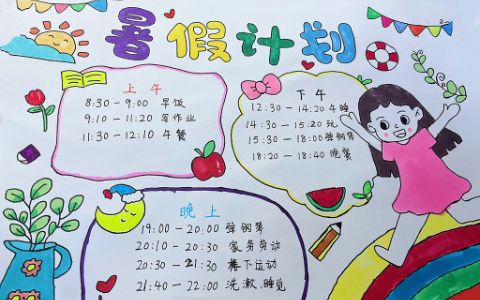 暑假计划
上午
8:30-9:00 早饭
9:10-11:20 写作业
11:30-12:10 午餐
下午
12:30-14:20 午睡
14:30-15:20 玩
15:30-18:00 弹钢琴
18:20-18:40 晚餐
晚上
19:00-20:00 弹钢琴
20:10-20:30 家务劳动
20:30-21:30 楼下运动
21:40-22:00 洗漱.睡觉